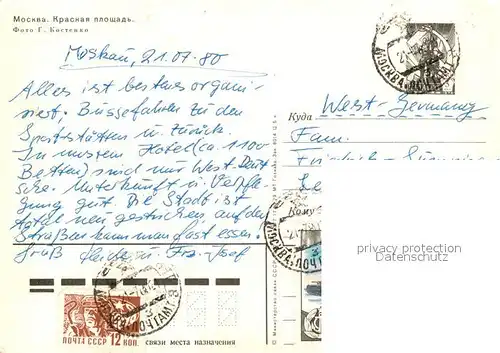 Москва. Красная площадь.
Фото Г. Костенко
Moskau, 21.07.80
Alles ist bestens organi-
siert. Bussefahrten zu den
Sportstätten u. zurück.
In unserem Hotel (ca. 1100
Betten) sind nur West-Deut
sche. Unterkunft u. Verpfle-
gung gut. Die Stadt ist
total neu gestrichen, auf den
Straßen kann man fast essen.
Gruß Heide u. Frz.-Josef
МОСКВА ПОЧТАМТ
Куда West-Germany
Fam.
Кому
МОСКВА ПОЧТАМТ
privacy protection
Datenschutz
МОСКВА ПОЧТАМТ
ПОЧТА СССР 12 КОП.
связи места назначения
© Министерство связи СССР